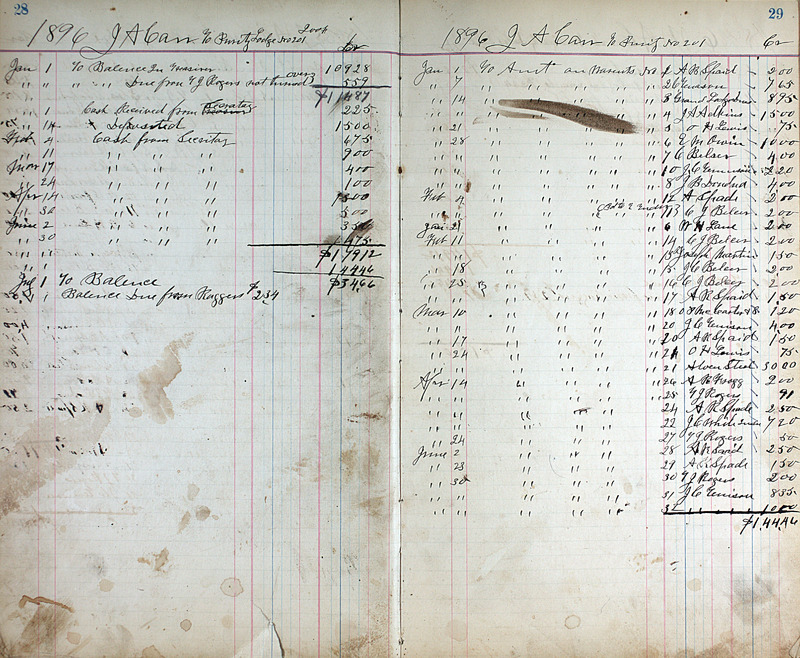 28
1896 J A Carr To Purity Lodge No 201
Dr
Jan 1 To Balence In Treasurer 10928
" " " Due from T J Rogers not turned over 559
$11487
" 1 Cash Received from Secretary 225
" 14 " Deposited 1500
Feb 4 Cash from Secretary 675
" 11 " " " 900
Mar 17 " " " 400
" 24 " " " 100
Apr 14 " " " 1500
" 30 " " " 500
June 2 " " "
" 30 " " " 1475
$17912
14446
Jul 1 To Balence $3466
" 1 Balence Due from Roggers $2.34
29
1896 J A Carr To Purity No 201
Cr
Jan 1 To Amt on Warrants No 1 A R Spaid 200
" 7 " " " " 2 765
" 14 " " " " 3 895
" " " " " 4 J A Adkins 1500
" 21 " " " " 5 O H Lewis 75
" 28 " " " " 6 E M Owin 1000
7 C J Beleer 400
10 J C Ennison 220
8 J B 400
Feb 4 12 A Spade 200
" " 13 C J Beleer 200
Jan 21 6 W H Lane 200
Feb 11 14 C J Beleer 200
15 Joseph Martin 150
" 18 15 C Beleer 200
" 25 16 C J Beleer 200
" " 17 A R Spaid 150
Mar 10 18 120
" " 20 J C Ennison 400
" 17 20 A R Spaid 150
" 24 21 O H Lewis 75
" " 21 Owen Steel 3000
Apr 14 26 A R 200
" " 25 T J Rogers 91
" " 24 A R Spade 250
" " 22 J C White 720
" 24 27 T J Rogers 50
June 2 28 A R Spaid 250
" 23 29 A R Spade 150
" 30 30 T J Rogers 200
" " 31 J C Ennison 855
" " 32 1000
$144.46